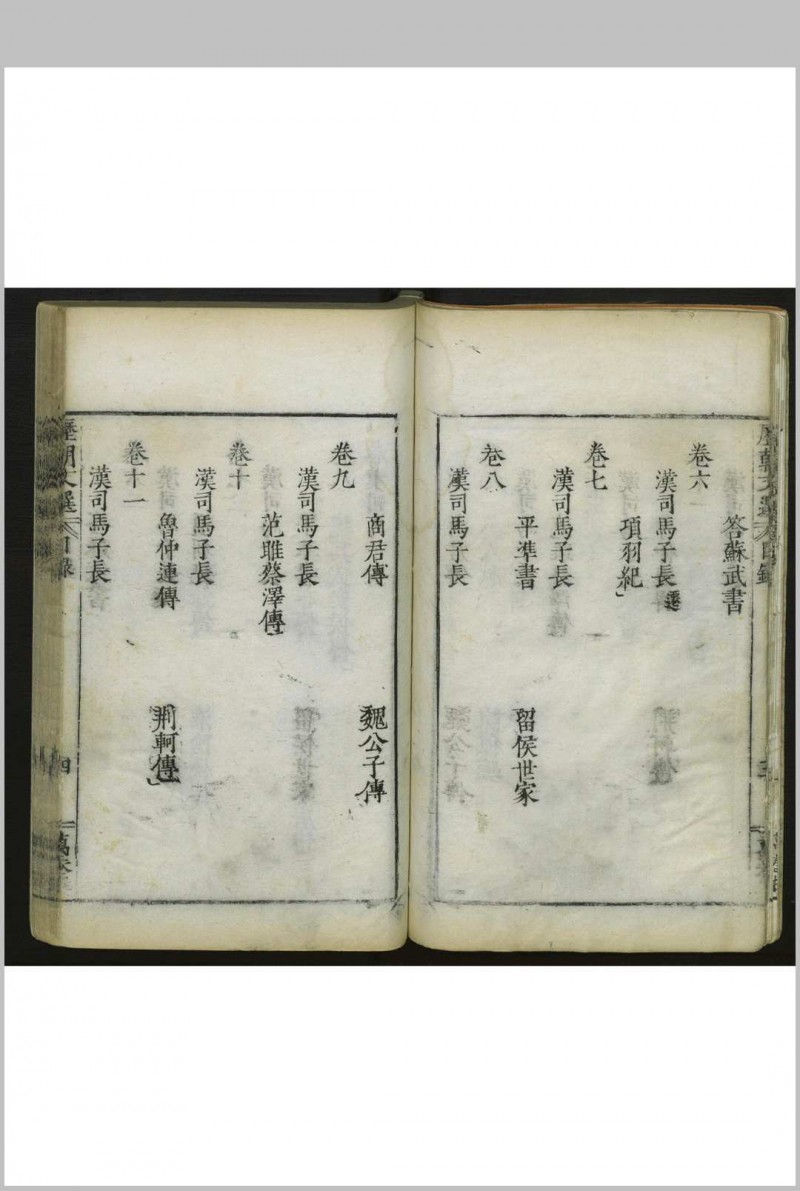 答蘇武書
卷六
漢司馬子長遷
項羽紀
卷七
漢司馬子長
平準書 留侯世家
卷八
漢司馬子長
商君傳 魏公子傳
卷九
漢司馬子長
范雎蔡澤傳
卷十
漢司馬子長
魯仲連傳 荆軻傳
卷十一
漢司馬子長
歷朝文選 目錄 四